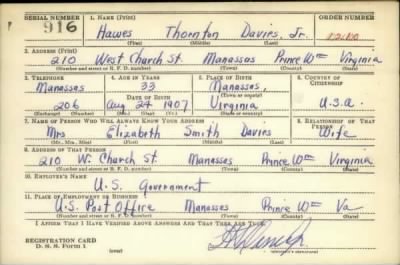 SERIAL NUMBER 1. NAME (Print) ORDER NUMBER
916 Hawes Thornton Davies, Jr.
(First) (Middle) (Last)
2. ADDRESS (Print)
210 West Church St. Manassas Prince Wm Virginia
(Number and street or R. F. D. number) (Town) (County) (State)
3. TELEPHONE 4. AGE IN YEARS 5. PLACE OF BIRTH 6. COUNTRY OF CITIZENSHIP
Manassas 33 Manassas,
DATE OF BIRTH (Town or county)
206 Aug 24 1907 Virginia U.S.a.
(Exchange) (Number) (Mo.) (Day) (Yr.) (State or country)
7. NAME OF PERSON WHO WILL ALWAYS KNOW YOUR ADDRESS 8. RELATIONSHIP OF THAT PERSON
Mrs Elizabeth Smith Davies Wife
(Mr., Mrs., Miss) (First) (Middle) (Last)
9. ADDRESS OF THAT PERSON
210 W. Church St. Manassas Prince Wm Virginia
(Number and street or R. F. D. number) (Town) (County) (State)
10. EMPLOYER'S NAME
U.S. Government
11. PLACE OF EMPLOYMENT OR BUSINESS
U.S. Post Office Manassas Prince Wm Va
(Number and street or R. F. D. number) (Town) (County) (State)
I AFFIRM THAT I HAVE VERIFIED ABOVE ANSWERS AND THAT THEY ARE TRUE.
REGISTRATION CARD
D. S. S. Form 1 (over)